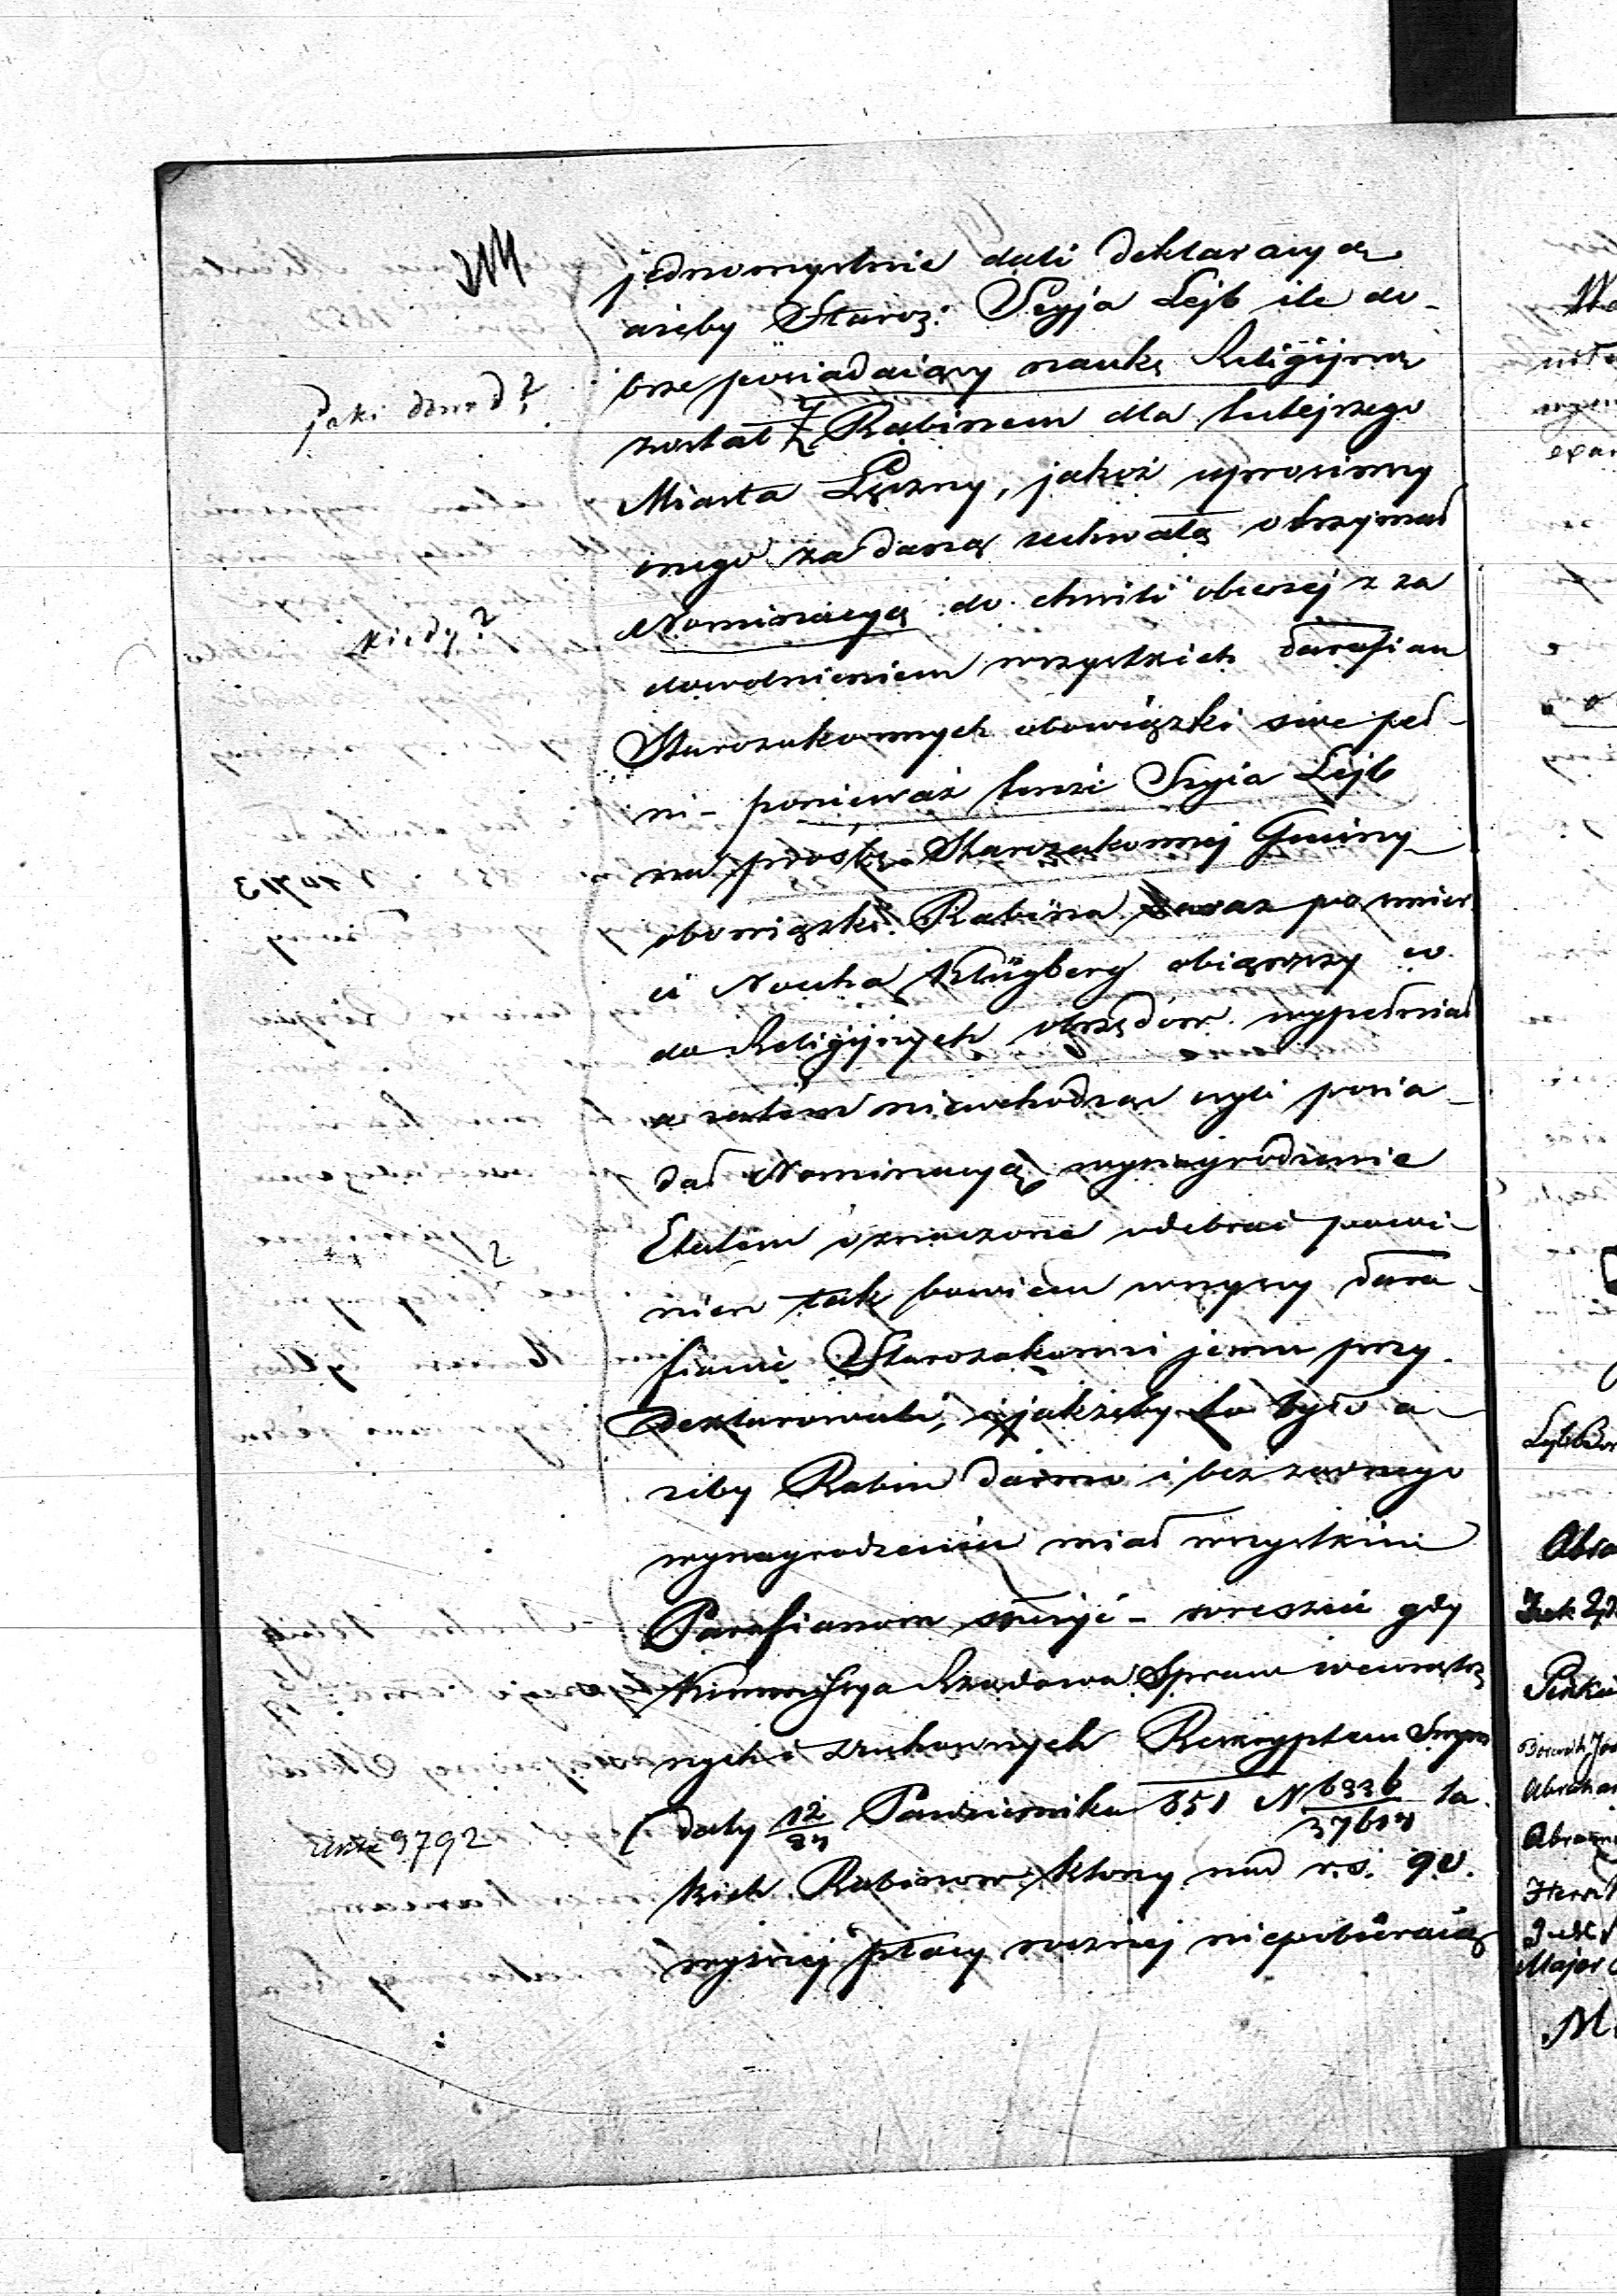 jednomyślnie dali deklaracyą
ażeby Staroz: Szyja Lejb ile do-
brze posiadaiący naukę Religijną
Jaki dowód?
został Rabinem dla tutejszego
Miasta Łęczny, jakoż uprosiwszy
onego za daną uchwałą otrzymał
Nominacyą do chwili obecnej z za
kiedy?
dowolnieniem wszystkich Parafian
Starozakonnych obowiązki swe peł-
ni - ponieważ tenże Szyia Lejb
na prośbę Starozakonnej Gminy
obowiązki Rabina zaraz po śmier
ci Noucha Klugberg obiąwszy w
do Religijnych obrzędów wypełniał
a zatem niewchodząc czyli posia-
dał Nominacyą wynagrodzenie
Etatem oznaczone odebrać powi-
nien tak bowiem wszyscy Para-
fianie Starozakonni jemu przy
deklarowali, jakżeby to było a-
żeby Rabin darmo i bez żadnego
wynagrodzenia miał wszystkim
Parafianom służyć - wreszcie gdy
Kommissya Rządowa Spraw wewnętrz
nych i Duchownych Reskryptem swym
daty 12/24 Października 851 N 6336/37614 ta
9792
kich Rabinow którzy nad r.s. 90.
wyżej płacy rocznej niepobieraią